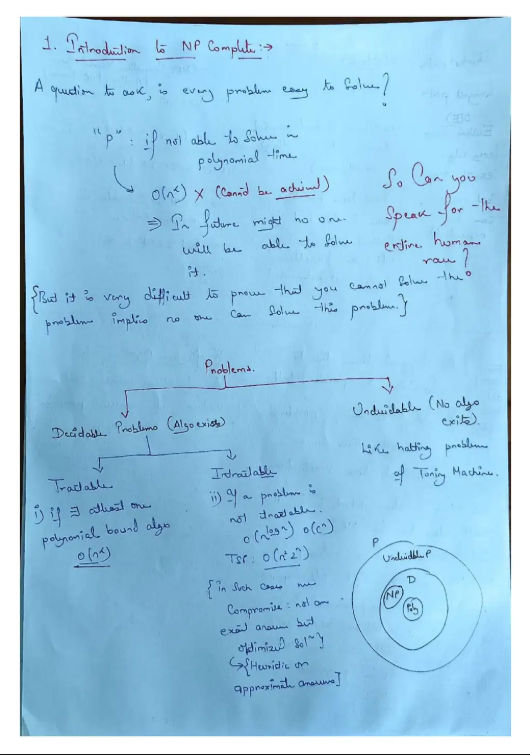 1. Introduction to NP Complete :→
A question to ask, is every problem easy to solve?
"P" : if not able to solve in
polynomial time
O(n^k) X (Cannot be achieved)
⇒ In future might no one
will be able to solve
it.
So Can you
speak for the
entire human
race?
{But it is very difficult to prove that you cannot solve the
problem implies no one can solve this problem.}
Problems.
Decidable Problems (Algo exists)
Undecidable (No algo
exists).
Like halting problem
of Turing Machine.
Tractable
i) if ∃ atleast one
polynomial bound algo
O(n^k)
Intractable
ii) If a problem is
not tractable.
O(n^log n) O(c^n)
TSP : O(n² 2^n)
{in such cases we
Compromise : not an
exact answer but
optimized sol^n}
↳{Heuristic or
approximate answers]
P
Undecidable P
D
NP
Poly